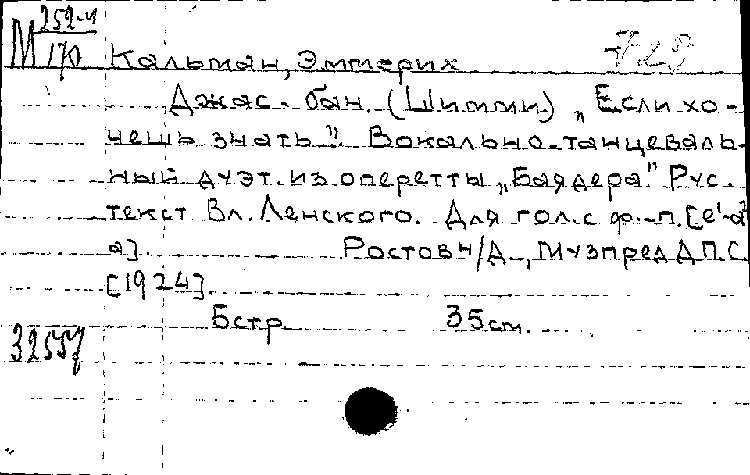 М 252-4
170
Кальман, Эммерих
Джас-бан. (Шимми) „Если хо-
чешь знать". Вокально-танцеваль-
ный дуэт. Из оперетты „Баядера". Рус.
текст Вл. Ленского. Для гол. с ф.-п. [е¹-а²
а]. Ростов н/Д., Музпред ДПС
[1924].
5стр 35см.
32557